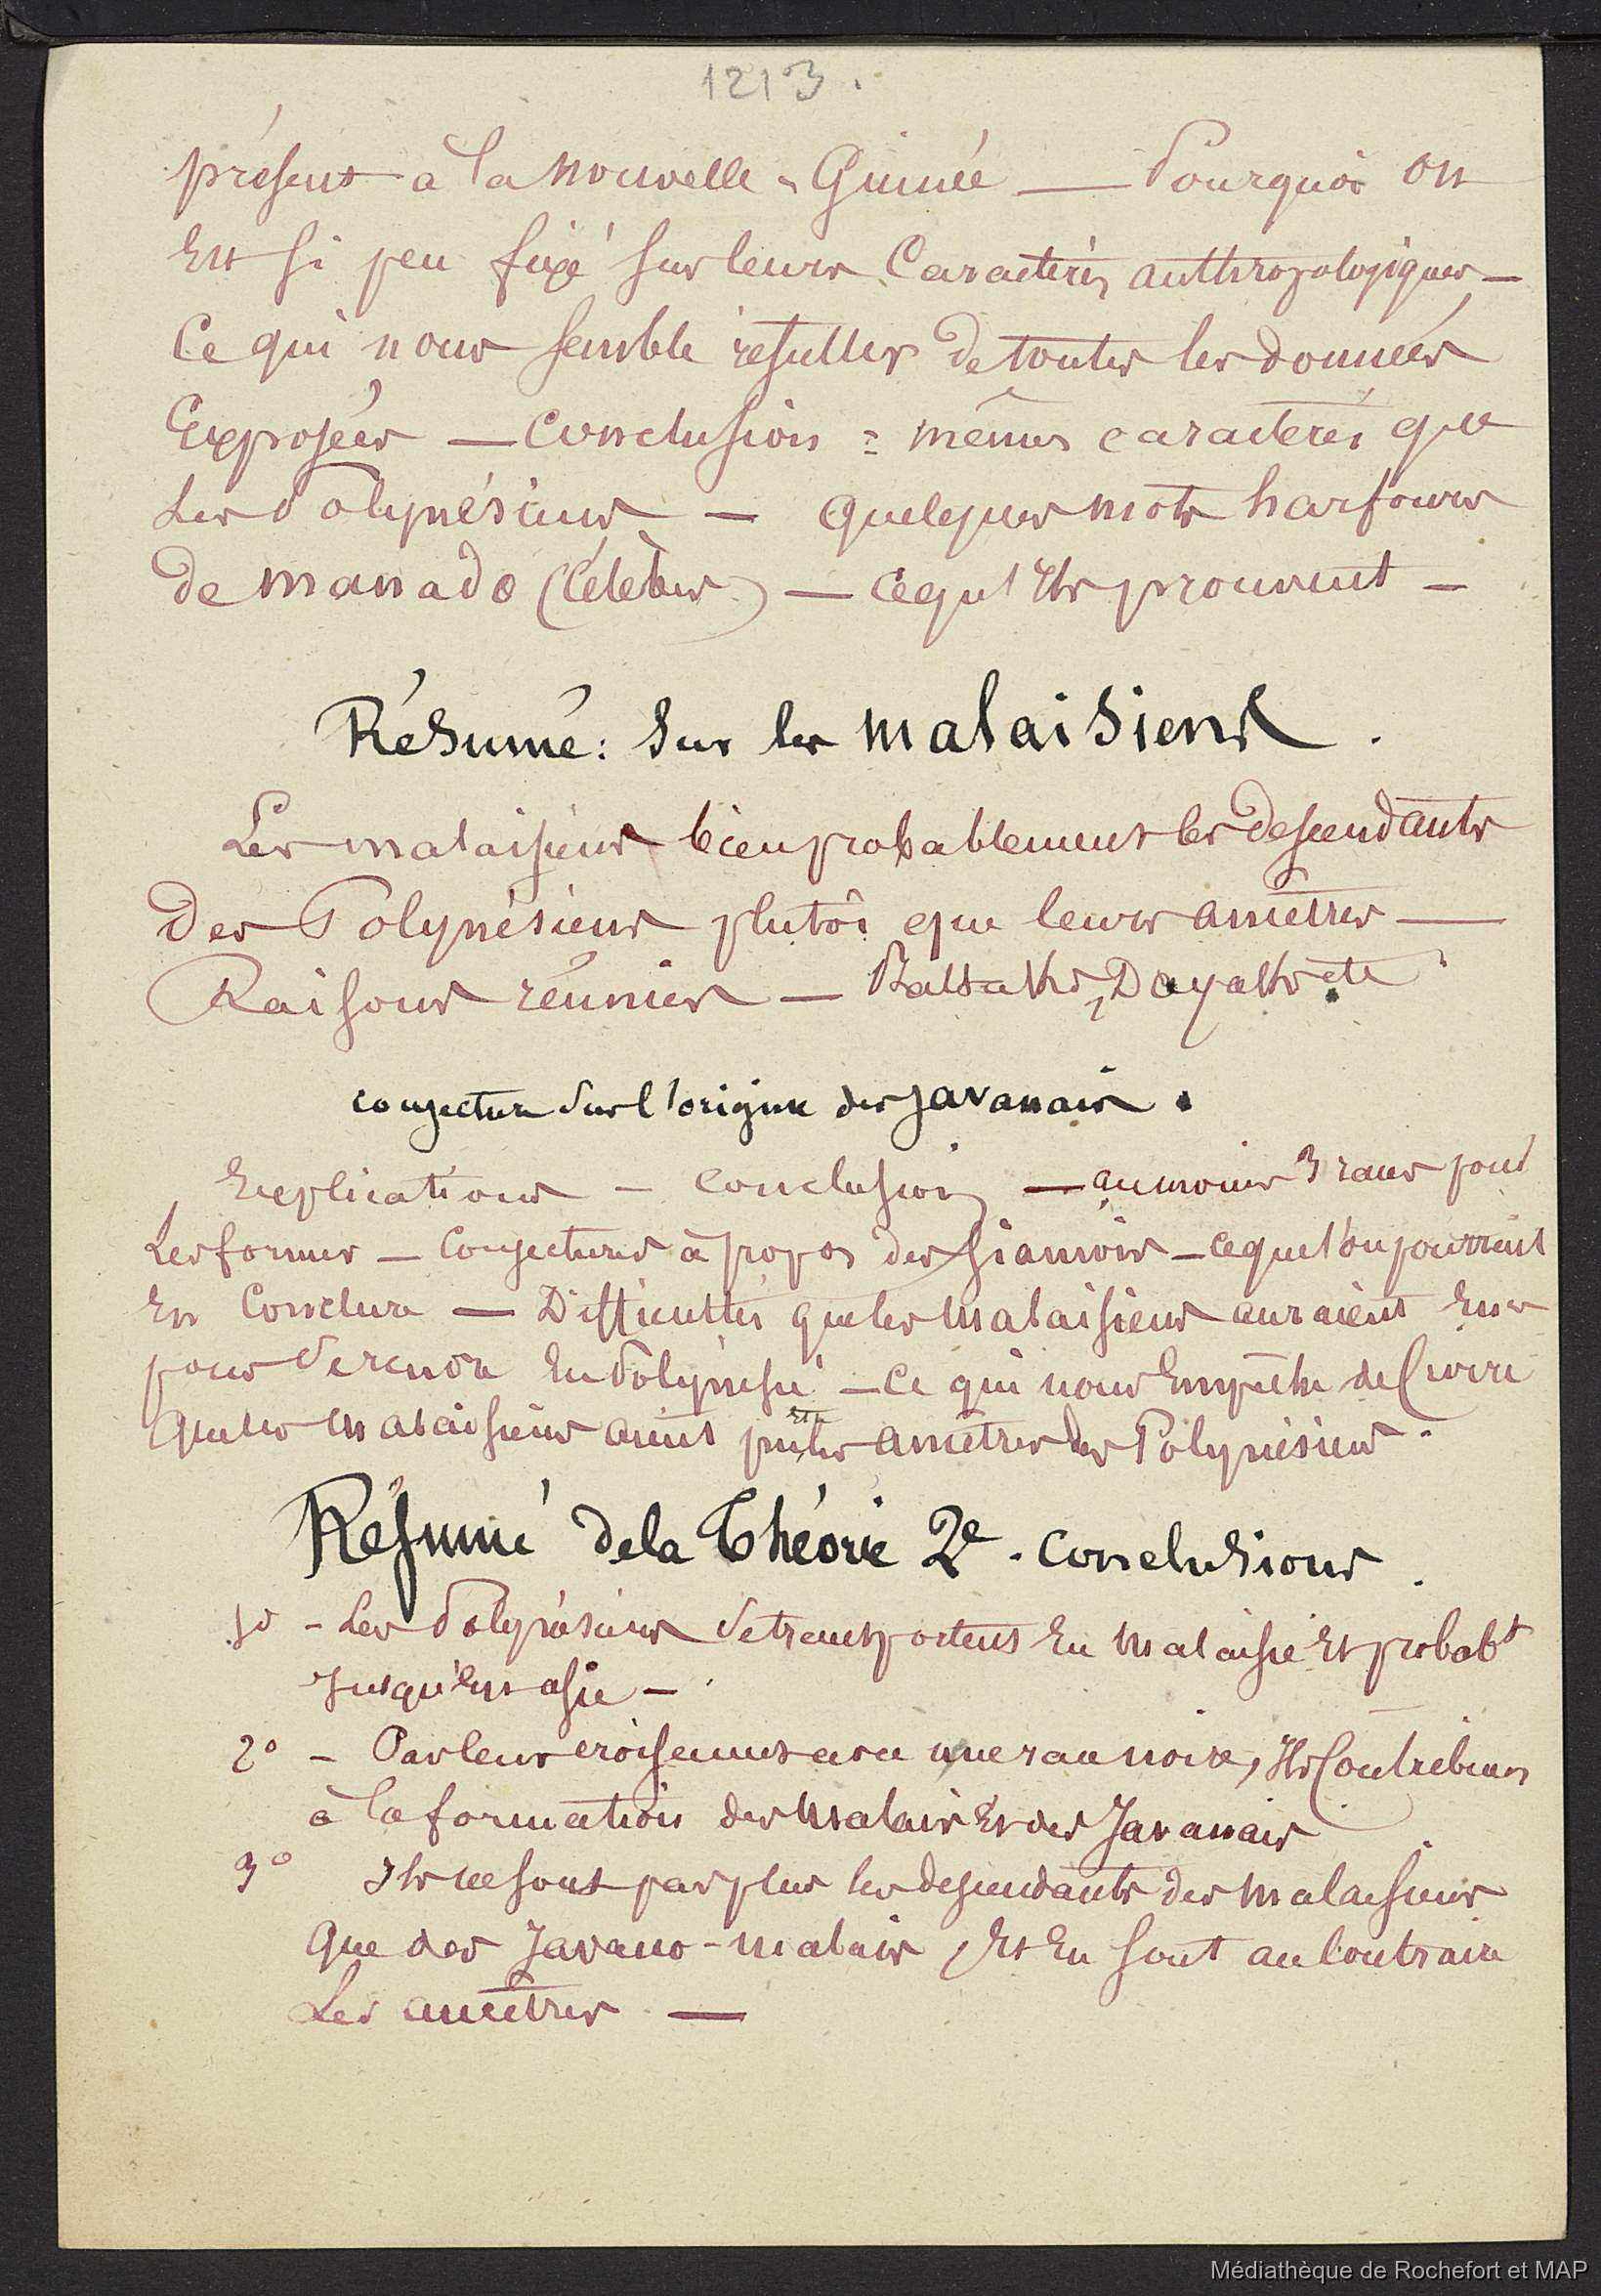 1213.
présent à la Nouvelle-Guinée — Pourquoi on
Est si peu fixé sur leurs Caractères anthropologiques —
Ce qui nous semble résulter de toutes les données
Exposées — Conclusion = mêmes caractères que
Les Polynésiens — quelques mots harfours
De Manado (Célèbes) — ce qu'Ils prouvent —
Résumé : Sur les Malaisiens.
Les malaisiens bien probablement les descendants
Des Polynésiens plutôt que leurs ancêtres —
Raisons réunies — Battaks, Dayaks etc
conjecture sur l'origine des javanais.
Explications — Conclusion — au moins 3 races pour
Les former — Conjectures à propos des Siamois — ce que l'on pourrait
En Conclure — Difficultés que les Malaisiens auraient Eues
pour Se rendre En Polynésie — Ce qui nous Empêche de Croire
Que les Malaisiens aient pu être les ancêtres des Polynésiens.
Résumé de la Théorie 2e. Conclusions.
1o - Les Polynésiens se transportent En Malaisie Et probabt
Jusqu'en asie —
2o — Par leur croisement avec une race noire, Ils Contribuent
à la formation des Malais Et des Javanais
3o Ils ne sont pas plus les descendants des Malaisiens
Que des Javano-malais, Et En sont au Contraire
Les ancêtres —
Médiathèque de Rochefort et MAP